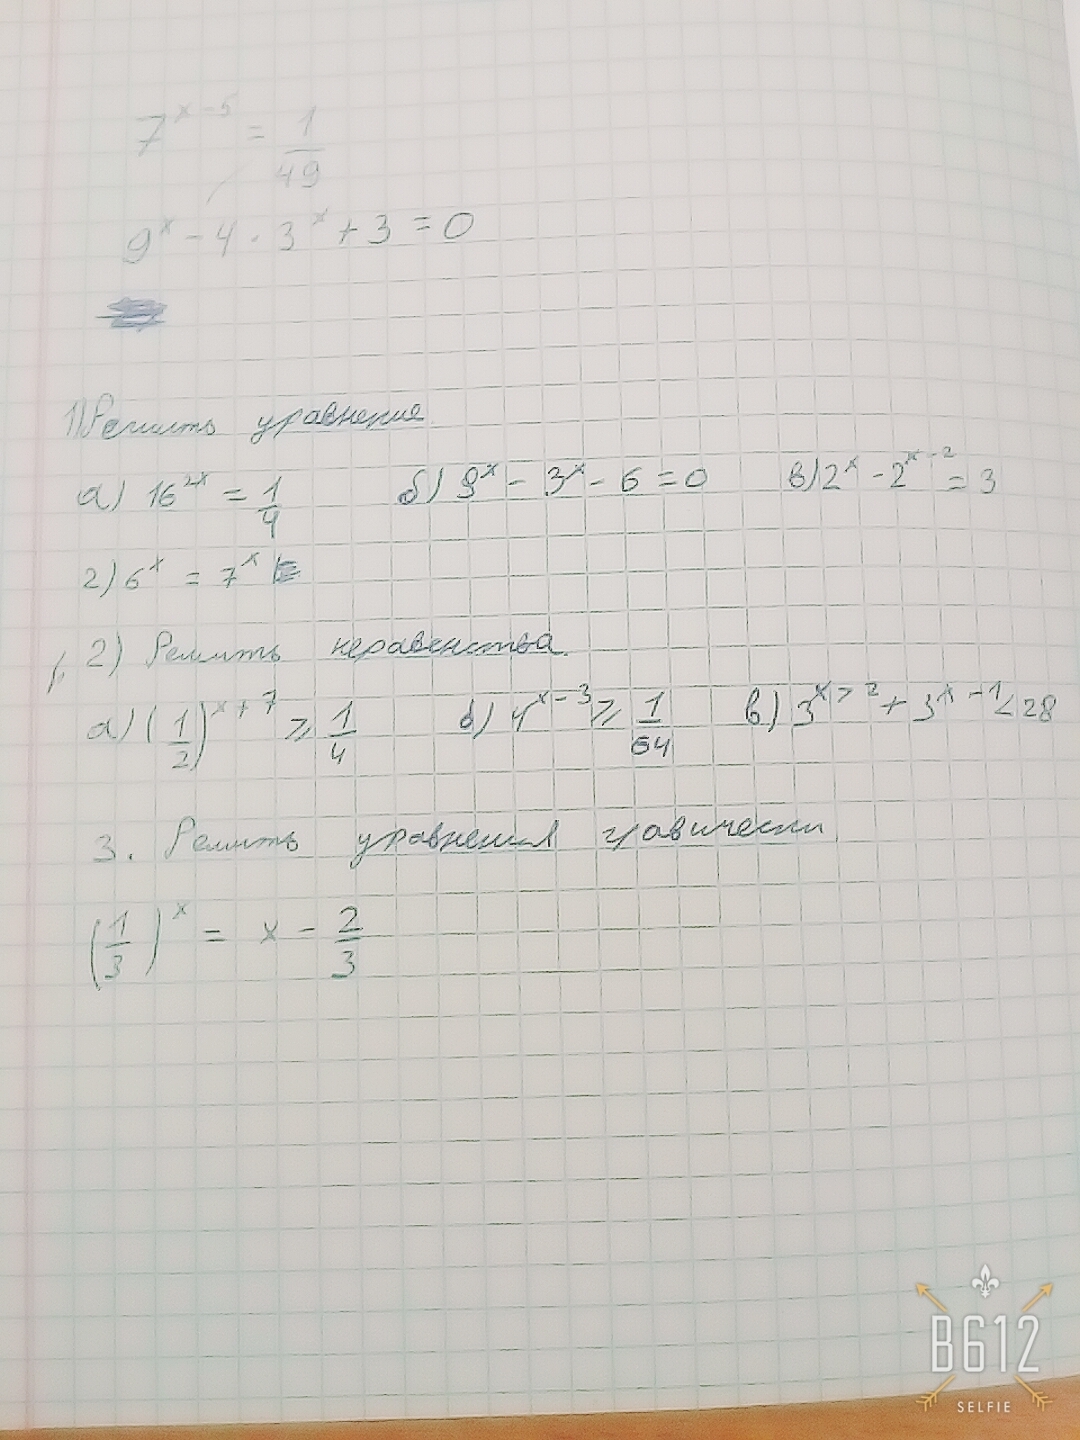 7^(x-5) = 1/49
9^x - 4 · 3^x + 3 = 0
1) Решить уравнения
а) 16^(2x) = 1/4 б) 9^x - 3^x - 6 = 0 в) 2^x - 2^(x-2) = 3
г) 6^x = 7^x
2) Решить неравенства.
а) (1/2)^(x+7) ⩾ 1/4 б) 4^(x-3) ⩾ 1/64 в) 3^(x+2) + 3^(x-1) < 28
3. Решить уравнения гравически.
(1/3)^x = x - 2/3
B612
SELFIE